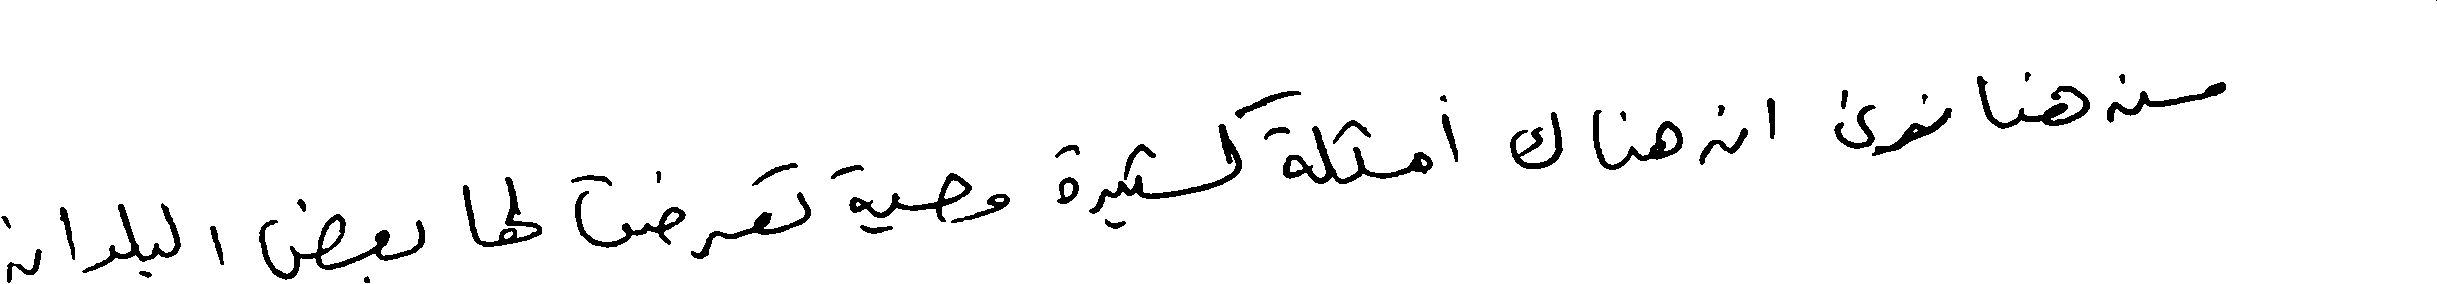 من هنا نرى ان هناك أمثلة كثيرة وحية تعرضت لها بعض البلدان